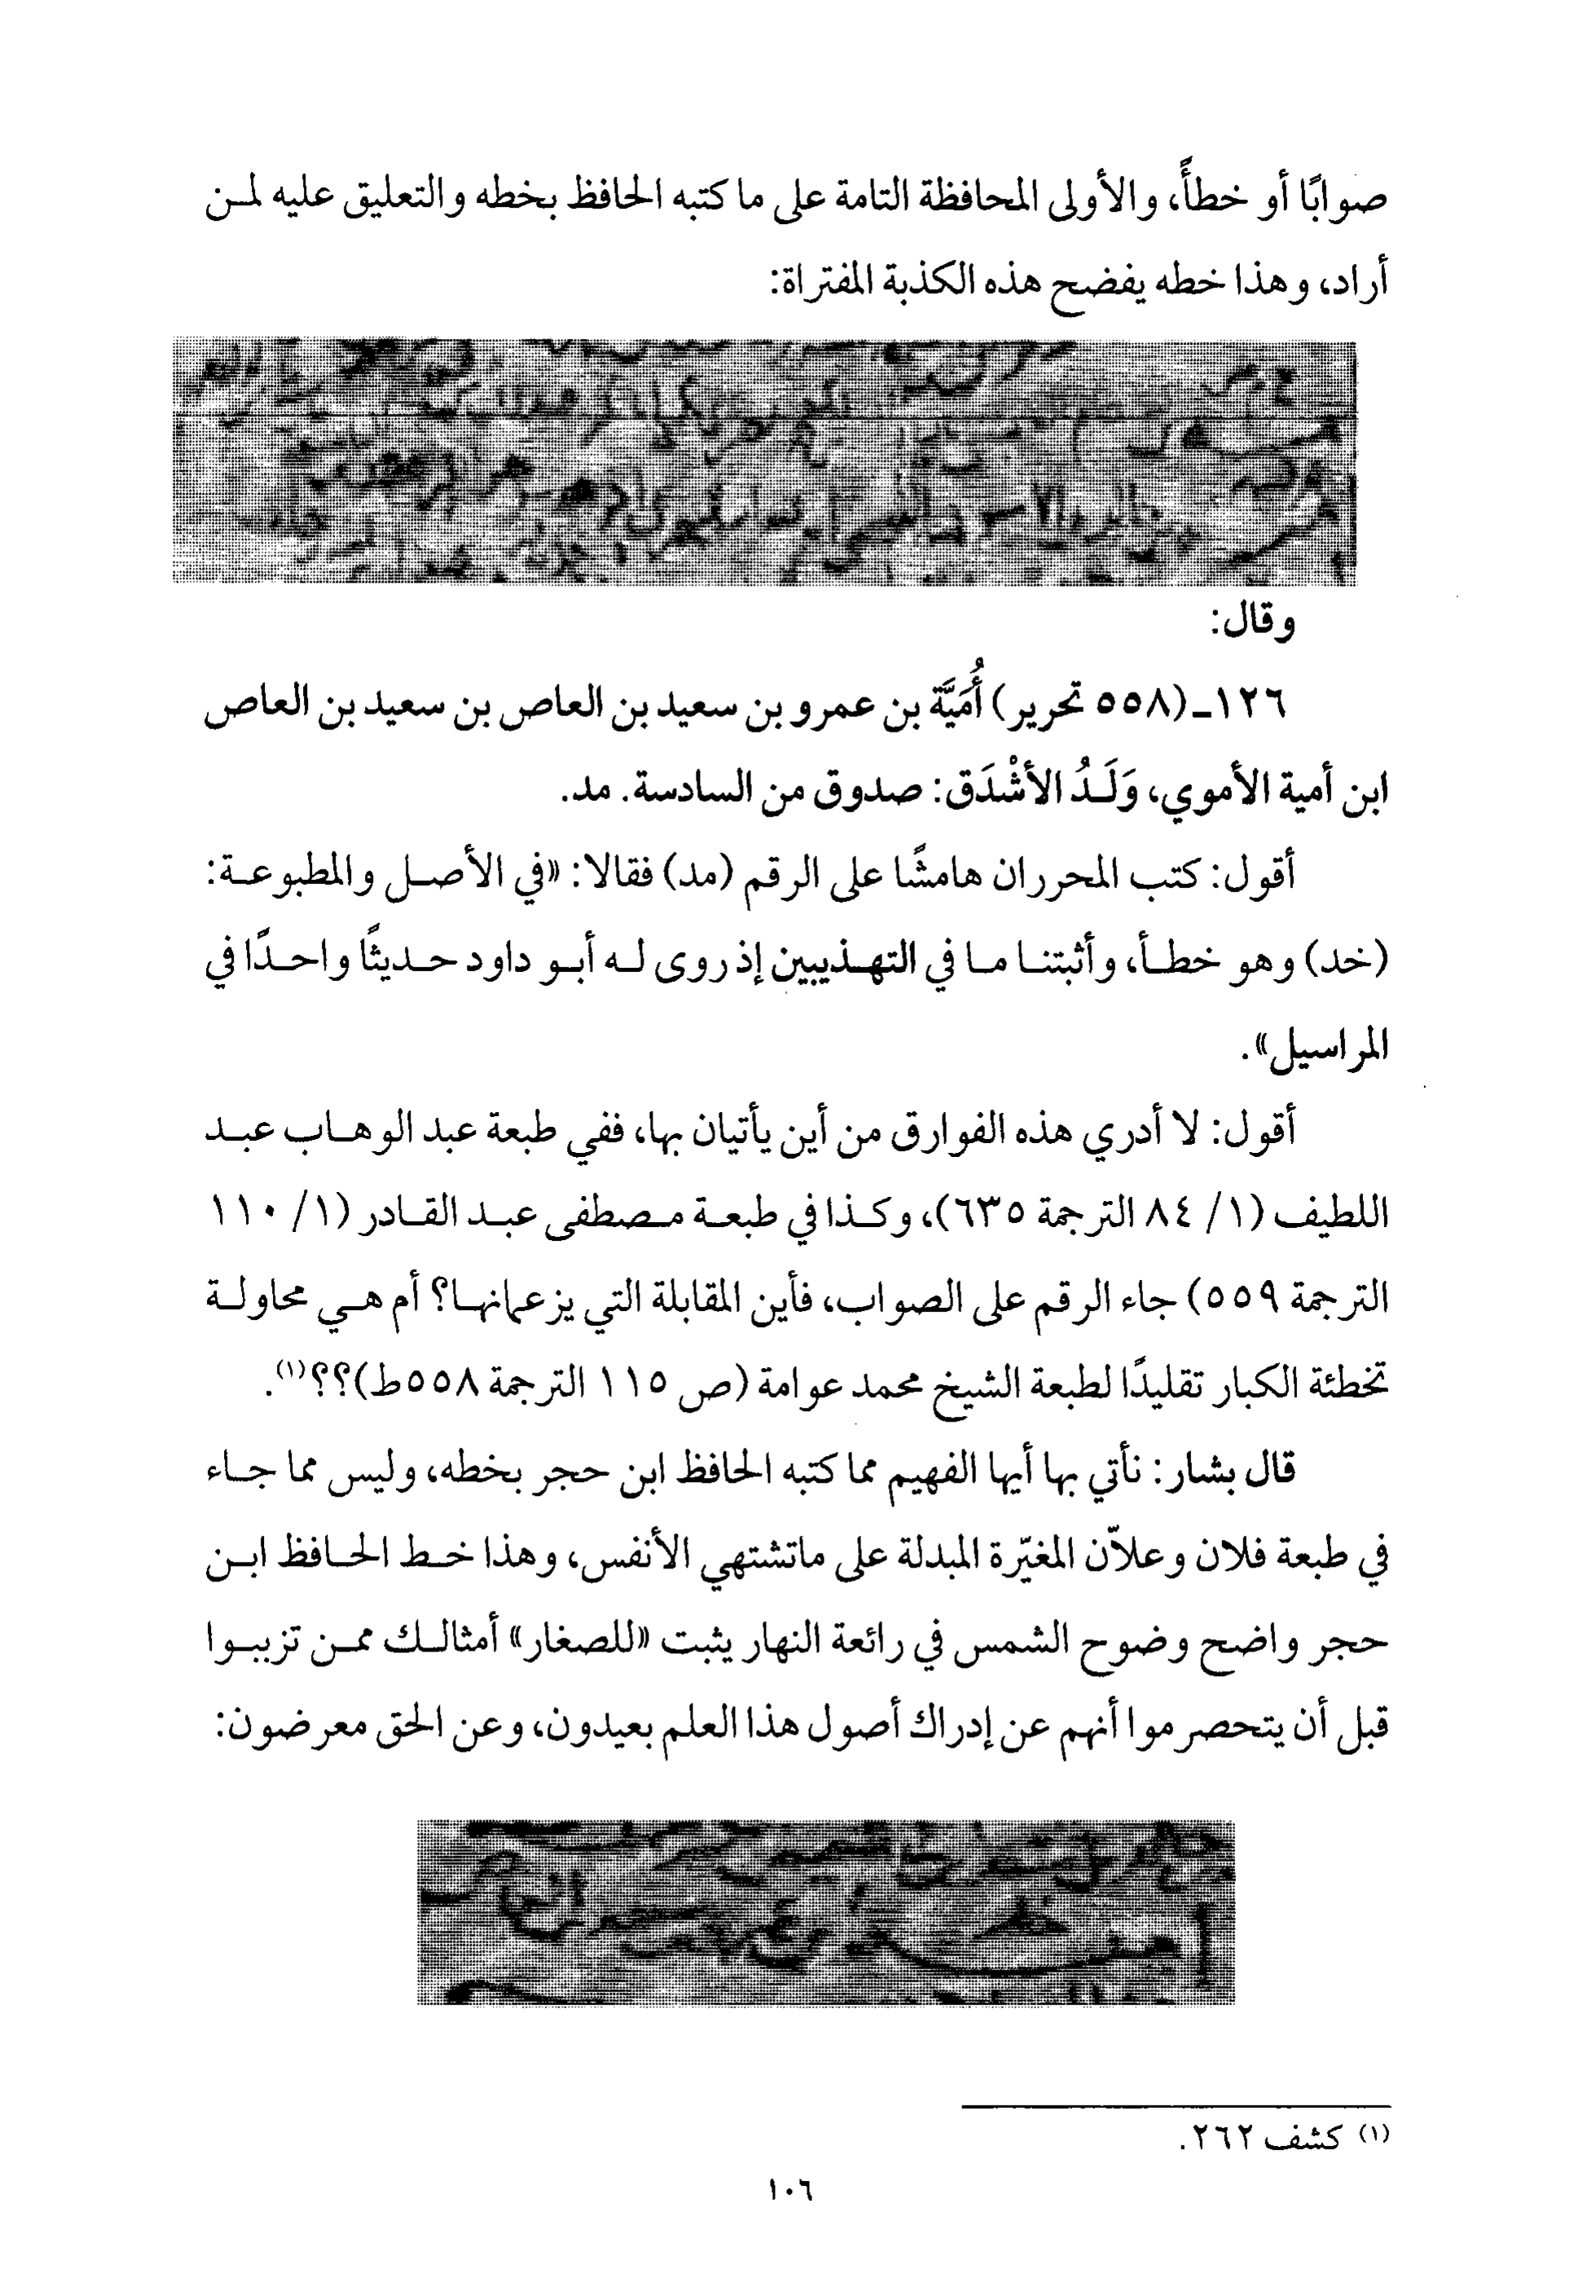 صوابًا أو خطأً، والأولى المحافظة التامة على ما كتبه الحافظ بخطه والتعليق عليه لمن
أراد، وهذا خطه يفضح هذه الكذبة المفتراة:
وقال:
١٢٦ـ (٥٥٨ تحرير) أُمَيَّة بن عمرو بن سعيد بن العاص بن سعيد بن العاص
ابن أمية الأموي، وَلَدُ الأشْدَق: صدوق من السادسة. مد.
أقول: كتب المحرران هامشًا على الرقم (مد) فقالا: «في الأصل والمطبوعة:
(خد) وهو خطأ، وأثبتنا ما في التهذيبين إذ روى له أبو داود حديثًا واحدًا في
المراسيل».
أقول: لا أدري هذه الفوارق من أين يأتيان بها، ففي طبعة عبد الوهاب عبد
اللطيف (١/ ٨٤ الترجمة ٦٣٥)، وكذا في طبعة مصطفى عبد القادر (١/ ١١٠
الترجمة ٥٥٩) جاء الرقم على الصواب، فأين المقابلة التي يزعمانها؟ أم هي محاولة
تخطئة الكبار تقليدًا لطبعة الشيخ محمد عوامة (ص ١١٥ الترجمة ٥٥٨ط)؟؟(١).
قال بشار: نأتي بها أيها الفهيم مما كتبه الحافظ ابن حجر بخطه، وليس مما جاء
في طبعة فلان وعلاّن المغيّرة المبدلة على ماتشتهي الأنفس، وهذا خط الحافظ ابن
حجر واضح وضوح الشمس في رائعة النهار يثبت «للصغار» أمثالك ممن تزببوا
قبل أن يتحصرموا أنهم عن إدراك أصول هذا العلم بعيدون، وعن الحق معرضون:
(١) كشف ٢٦٢.
١٠٦